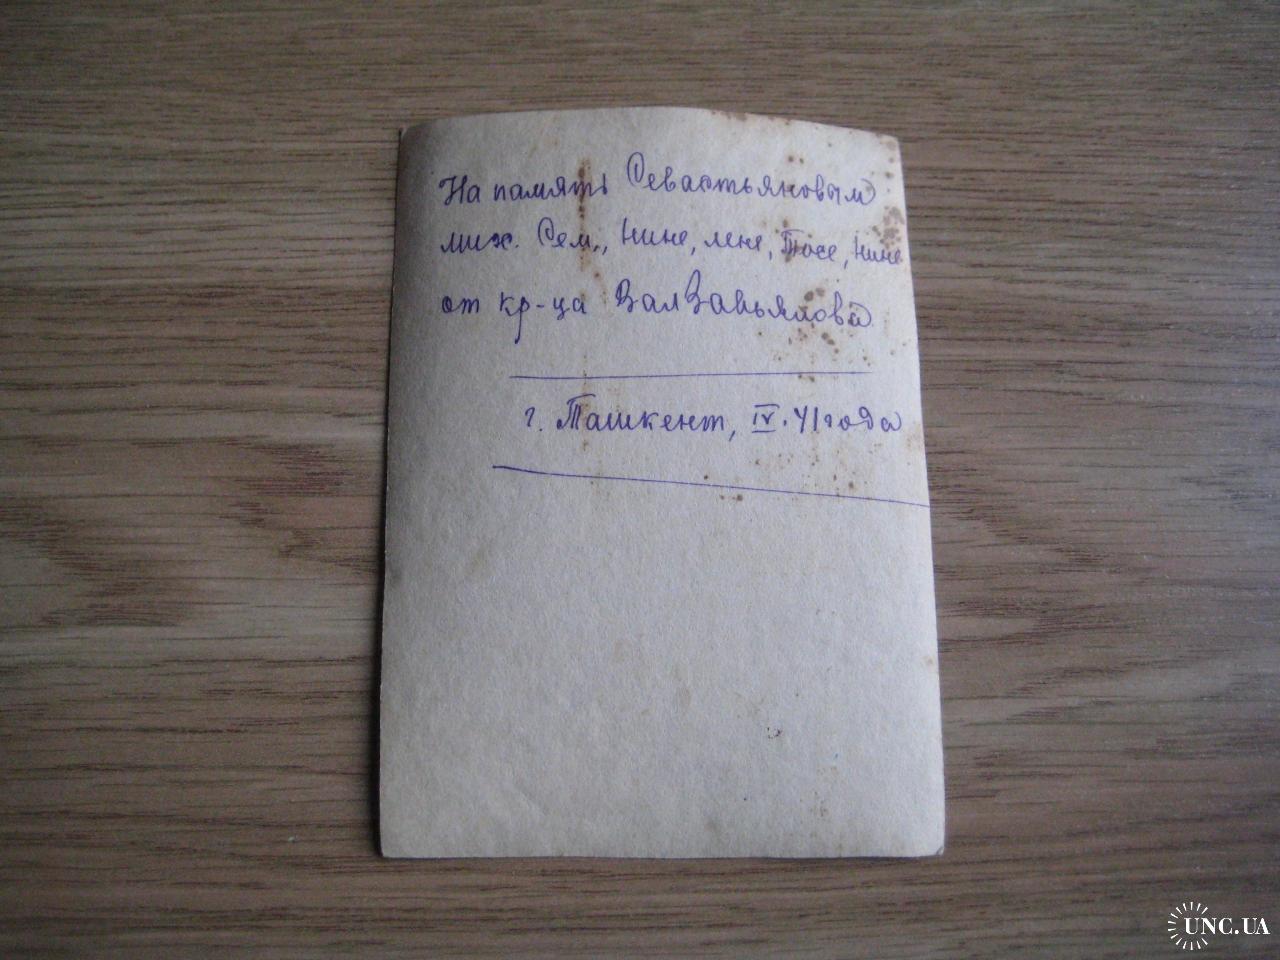 На память Севастьяновым
Мих. Сем., Нине, Лене, Тосе, Нине
от кр-ца Вал Завьялова
г. Ташкент, IV. 41 года
UNC.UA